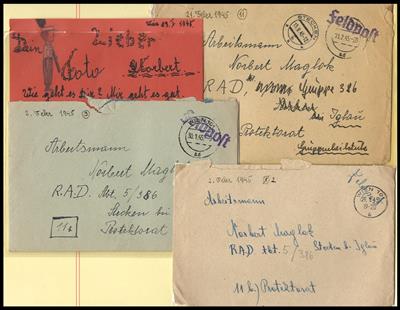 Wien 29.I.1945
Dein Lieber
Foto Norbert
Wie geht es Dir? Mir geht es gut.
21. Feber 1945 11
Feldpost
Arbeitsmann
Norbert Maglok
RAD, Gruppe 386
bei Iglau
Protektorat
Gruppenleitstelle
2. Feber 1945 3
Feldpost
WIEN
30.1.45
Arbeitsmann
Norbert Maglok
R.A.D. Abt. 5/386
Stecken bei
Protektorat
11b
2. Feber 1945 2
WIEN
Arbeitsmann
Norbert Maglok
RAD Abt. 5/386 Stecken b. Iglau
11b) Protektorat